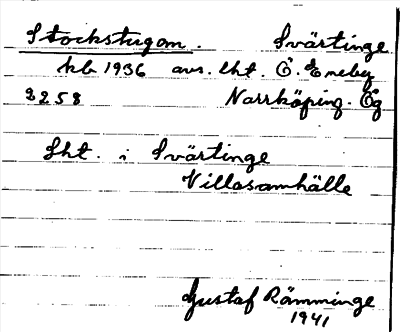 Stockstugom. Svärtinge
kb 1936 avs. lht. Ö. Eneby
2258 Norrköping. Ög
Lht. i Svärtinge
Villasamhälle
Gustaf Rämminge
1941